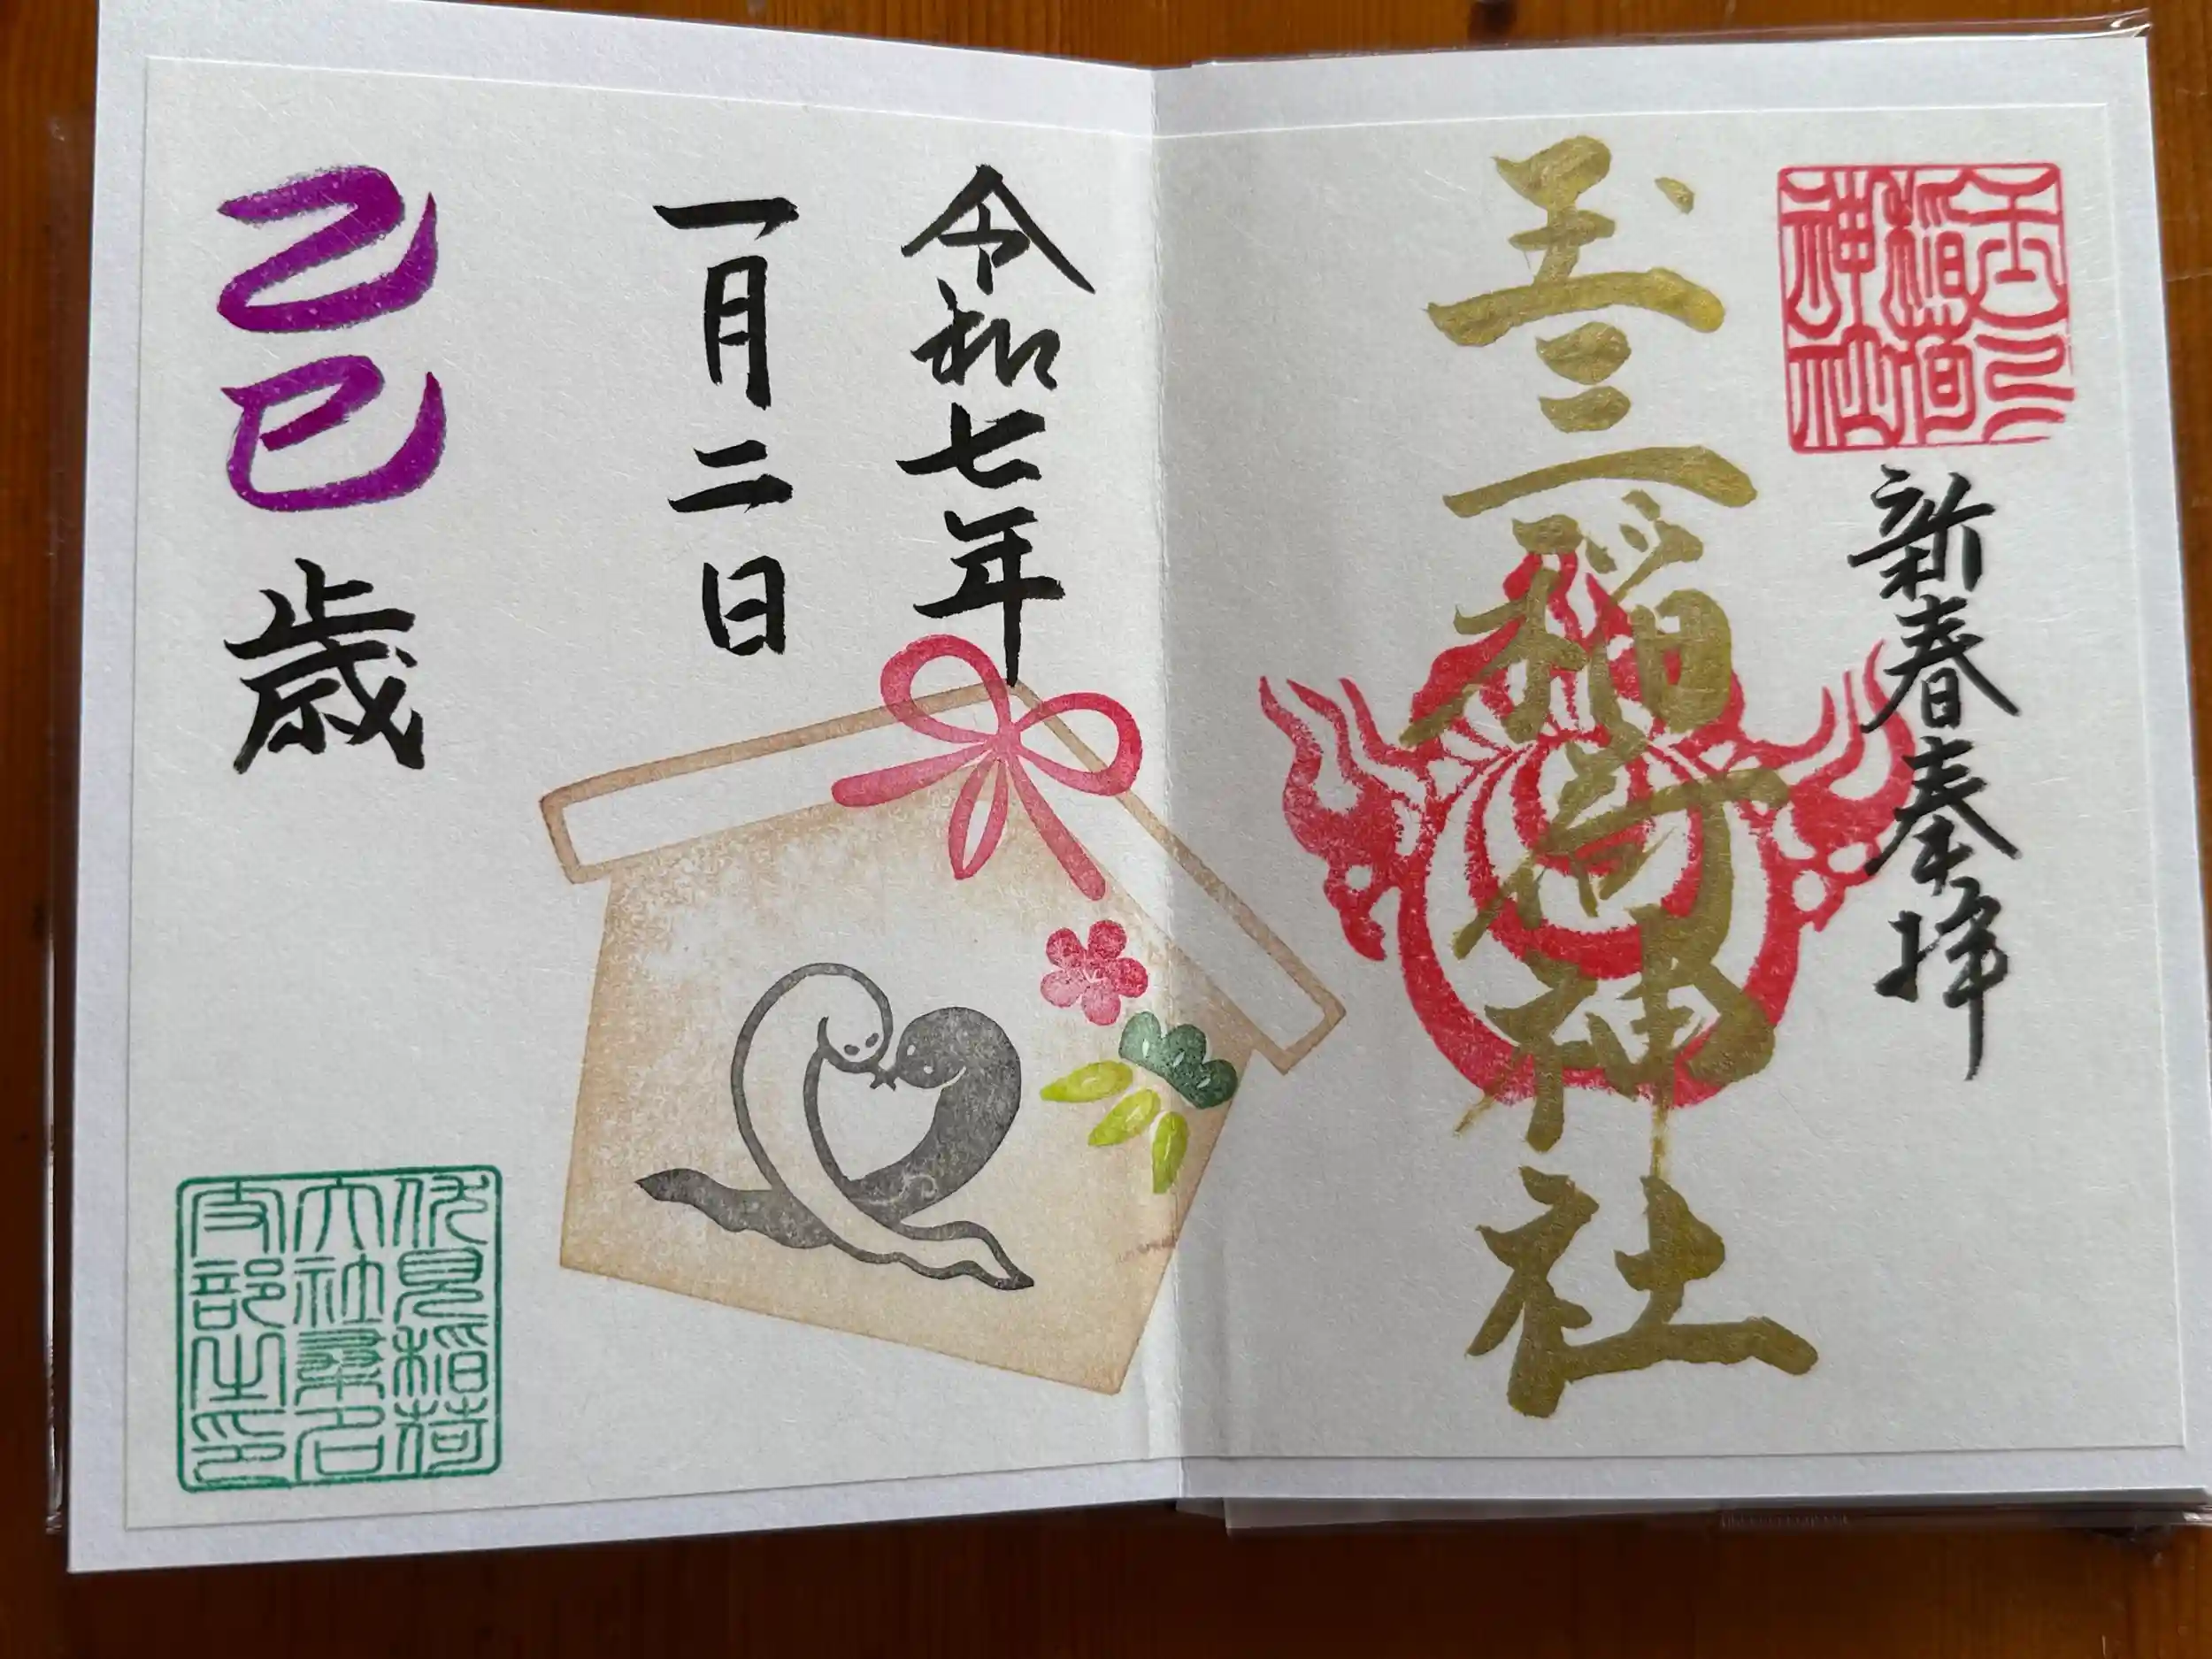 玉三
稲荷
神社
新春奉拝
玉三稲荷神社
令和七年
一月二日
乙巳歳
伏見稲荷
大社桑名
支部之印